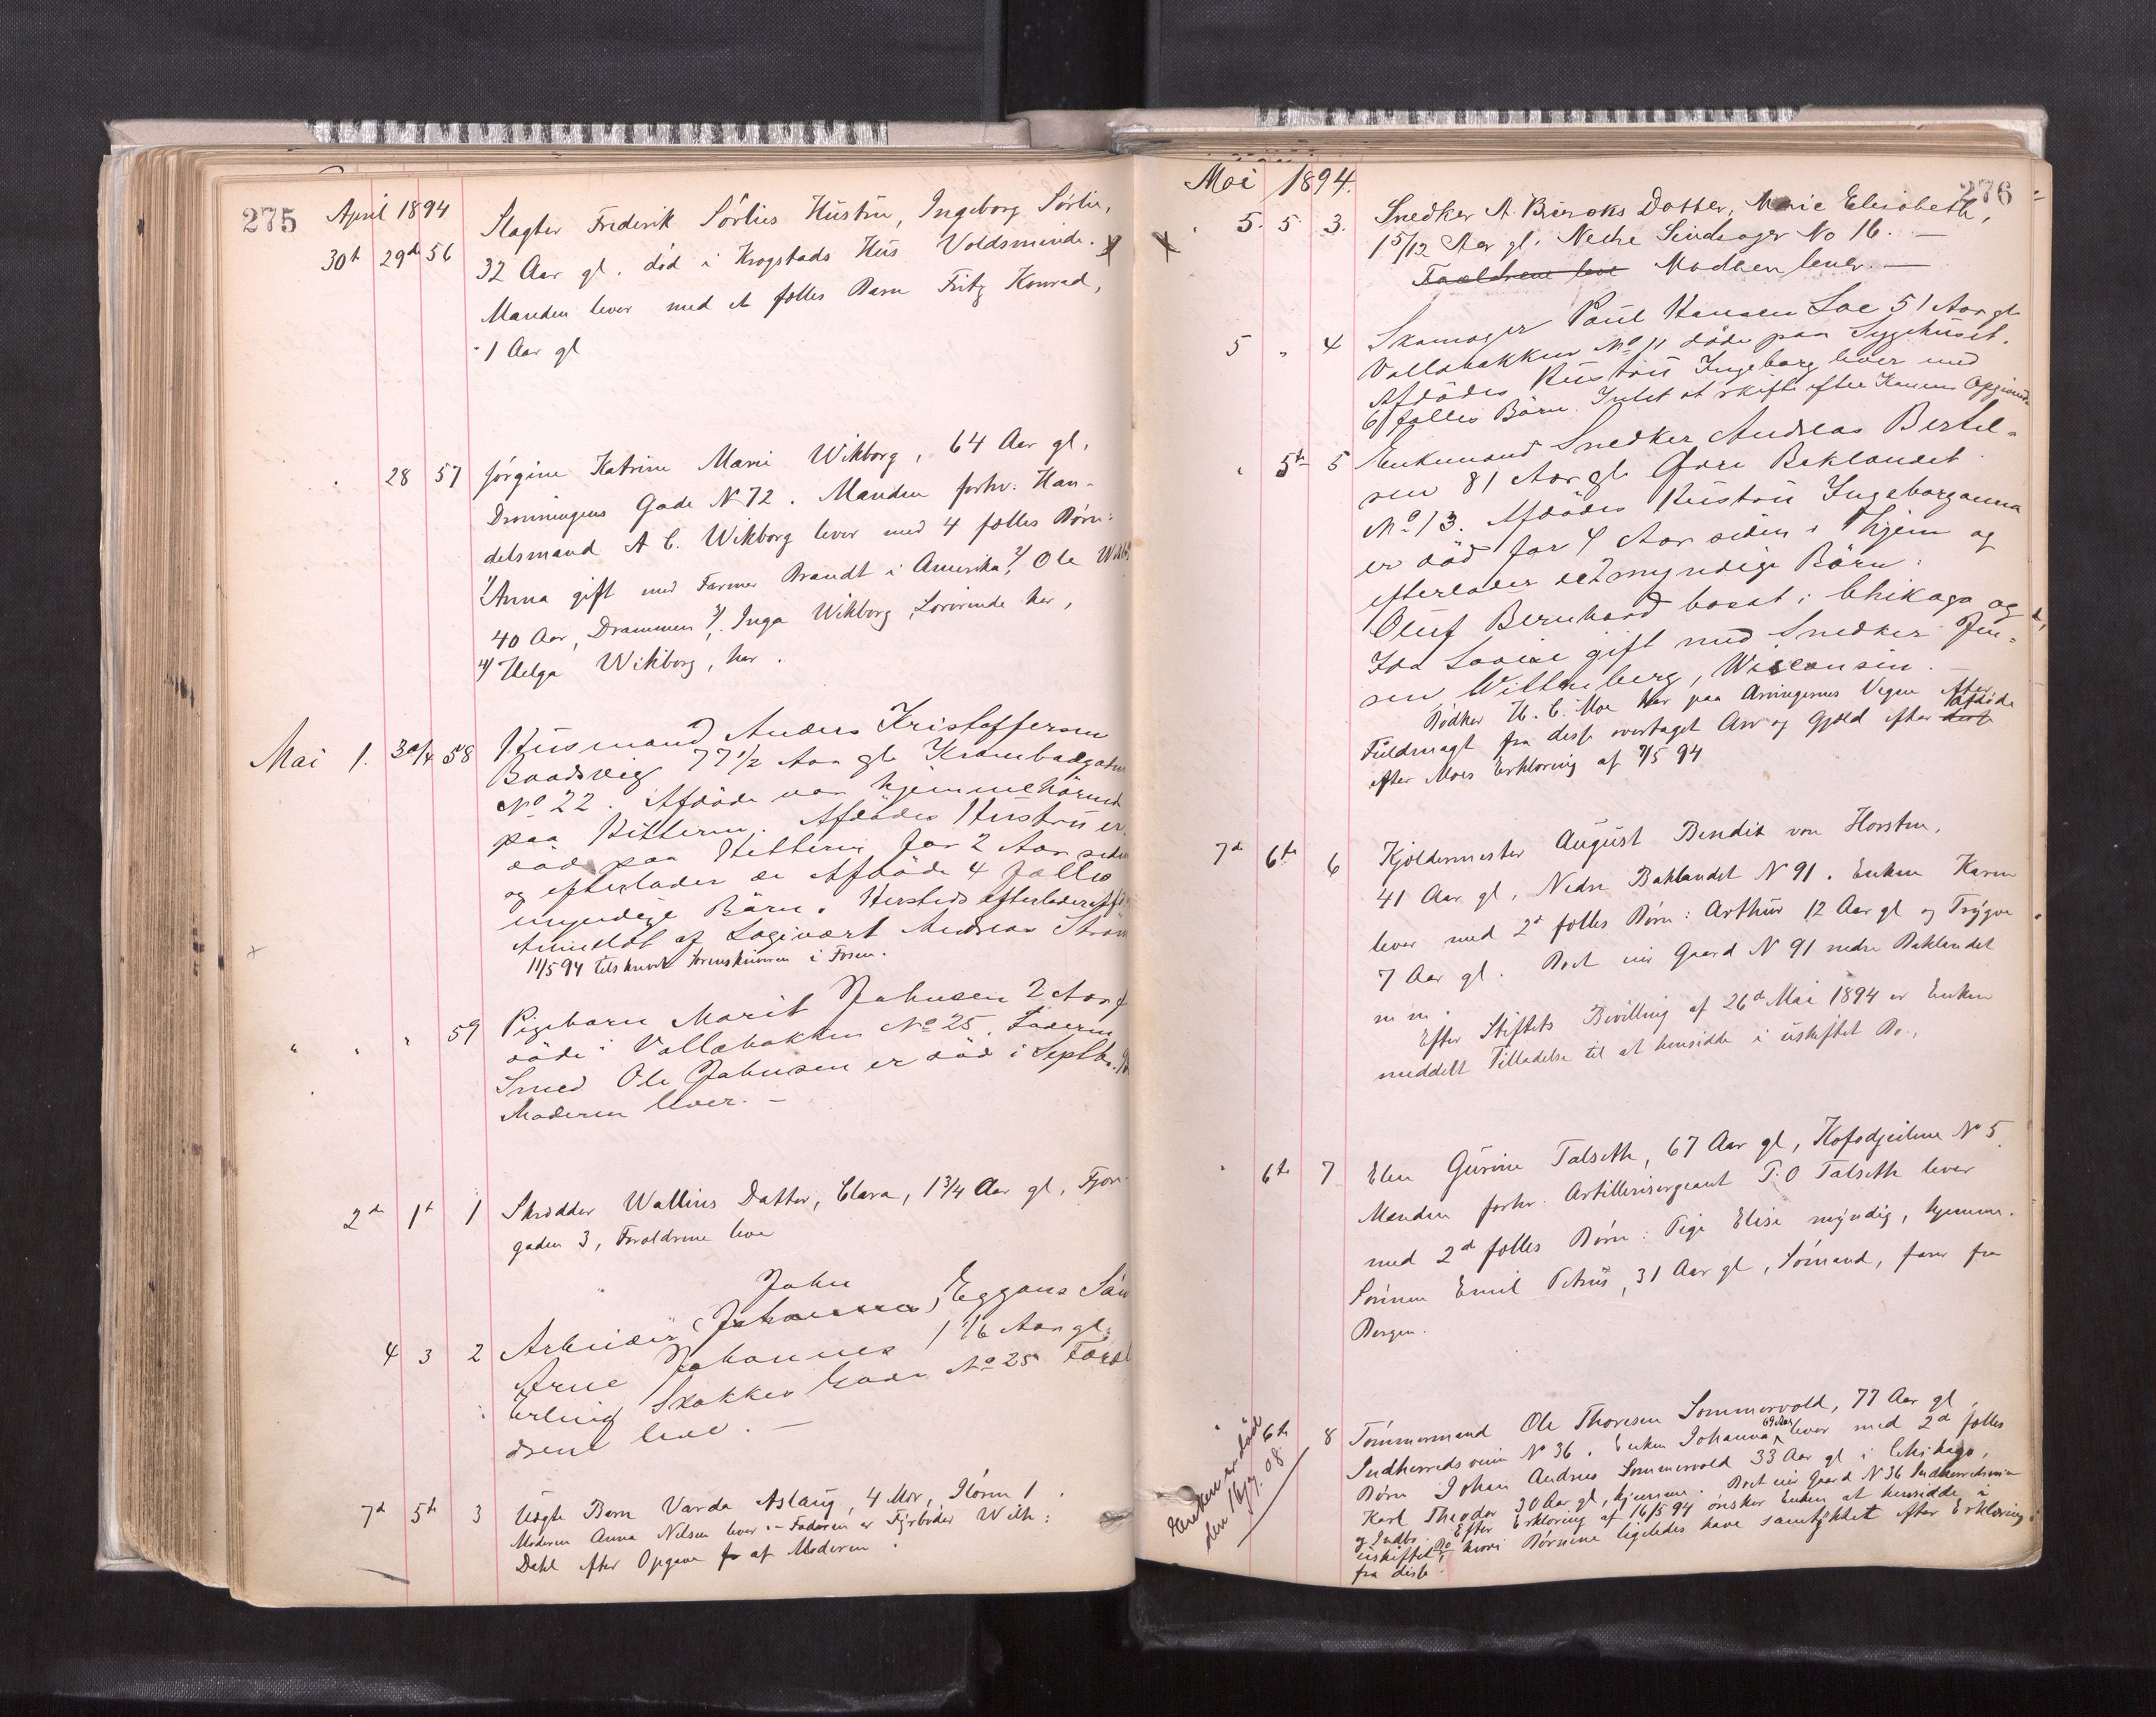 275 April 1894
30t 29de 56 Slagter Frederik Sörlies Hustru, Ingeborg Sörlie,
32 Aar gl. död i Krogstads Hus Voldsminde.
Manden lever med et fælles Barn Fritz Konrad,
1 Aar gl
28 57 Jörgine Katrine Marie Wikborg, 64 Aar gl,
Dronningens Gade N 72. Manden forhv: Han-
delsmand A C. Wikborg lever med 4 fælles Börn:
1/ Anna gift med Farmer Brandt i Amerika 2/, Ole Wikb
40 Aar, Drammen 3/. Inga Wikborg, Lærerinde her,
4/ Helga Wikborg, her.
Mai 1. 30/4 58 Husmand Anders Kristoffersen
Baadsvig 77 1/2 Aar gl Krambodgaden
No 22. Afdöde var hjemmehörende
paa Hitteren. Afdödes Hustru er
död paa Hitteren for 2 Aar siden
og efterlader de Afdöde 4 fælles
myndige Börn. Hersteds efterlader Afd
Anmeldt af Logivært Andreas Ström
11/5 94 tilskrevet Sorenskriveren i Fosen.
" " " 59 Pigebarn Marit Johnsen 2 Aar g
döde i Vollabakken No 25. Faderen
Smed Ole Johnsen er död i Septbr.
Moderen lever. -
2d 1t 1 Skrædder Wallins Datter, Clara, 1 3/4 Aar gl, Fjor-
gaden 3, Forældrene leve
John
4 3 2 Arbeider (Johansen) Eggans Sön
Arne Johannes 1 1/6 Aar gl.
Erling Skakkes Gade No 25 Foræl
drene leve. -
7d 5te 3 Uægte Barn Varda Aslaug, 4 Mdr, Ilören 1.
Moderen Anna Nilsen lever. - Faderen er Fyrböder Wilh:
Dahl efter Opgave fr af Moderen.
Mai 1894. 276
5. 5 3. Snedker A. Datter, Marie Elisabeth,
1 5/12 Aar gl. Nedre No 16. -
Forældrene leve Moderen lever. -
5 " 4 Skomager Paul Hansen Loe 51 Aar gl
Vollabakken No 11 döde paa Sygehuset.
Afdödes Hustru Ingeborg lever med
6 fælles Börn. Intet at skifte efter Konens Opgivende
" 5te 5 Enkemand Snedker Andreas Bertel-
sen 81 Aar gl Övre Baklandet
No 13. Afdödes Hustru Ingeborganna
er död for 4 Aar siden i Thjem og
efterlader de 2 myndige Börn:
Oluf Bernhard bosat i Chikago og
Ida Lovise gift med Snedker Jen-
sen Wittenberg, Wisconsin. -
Bödker H. C. Moe har paa Arvingernes Vegne efter
Fuldmagt fra disse overtaget Arv og Gjæld efter disse Afdöde
efter Moes Erklæring af 7/5 94
7de 6te 6 Kjeldermester August Bendix von Horsten,
41 Aar gl, Nedre Baklandet N 91. Enken Karen
lever med 2de fælles Börn: Arthur 12 Aar gl og Trygve
7 Aar gl. Boet eier Gaard N 91 nedre Baklandet
m m.
Efter Stiftets Bevilling af 26de Mai 1894 er Enken
meddelt Tilladelse til at hensidde i uskiftet Bo.,
" 6te 7 Elen Gurine Talseth, 67 Aar gl, N 5.
Manden forhv. Artillerisergeant P. O Talseth lever
med 2de fælles Börn: Pige Elise myndig, hjemme.
Sönnen Emil Petrus, 31 Aar gl, Sömand, farer fra
Bergen.
Enken er död
den 16/7. 08
" 6te 8 Tömmermand Ole Thoresen Sommervold, 77 Aar gl,
Indherredsveien N 36. Enken Johanna 69 Aar lever med 2de fælles
Börn Johan Andreas Sommervold 33 Aar gl i Chikago,
Karl Theodor 30 Aar gl, hjemme. Boet eier Gaard N 36 Indherredsveien
og Indbo. Efter Erklæring af 16/5 94 önsker Enken at hensidde i
uskiftet Bo, hvori Börnene ligeledes have samtykket efter Erklæring
fra disse.